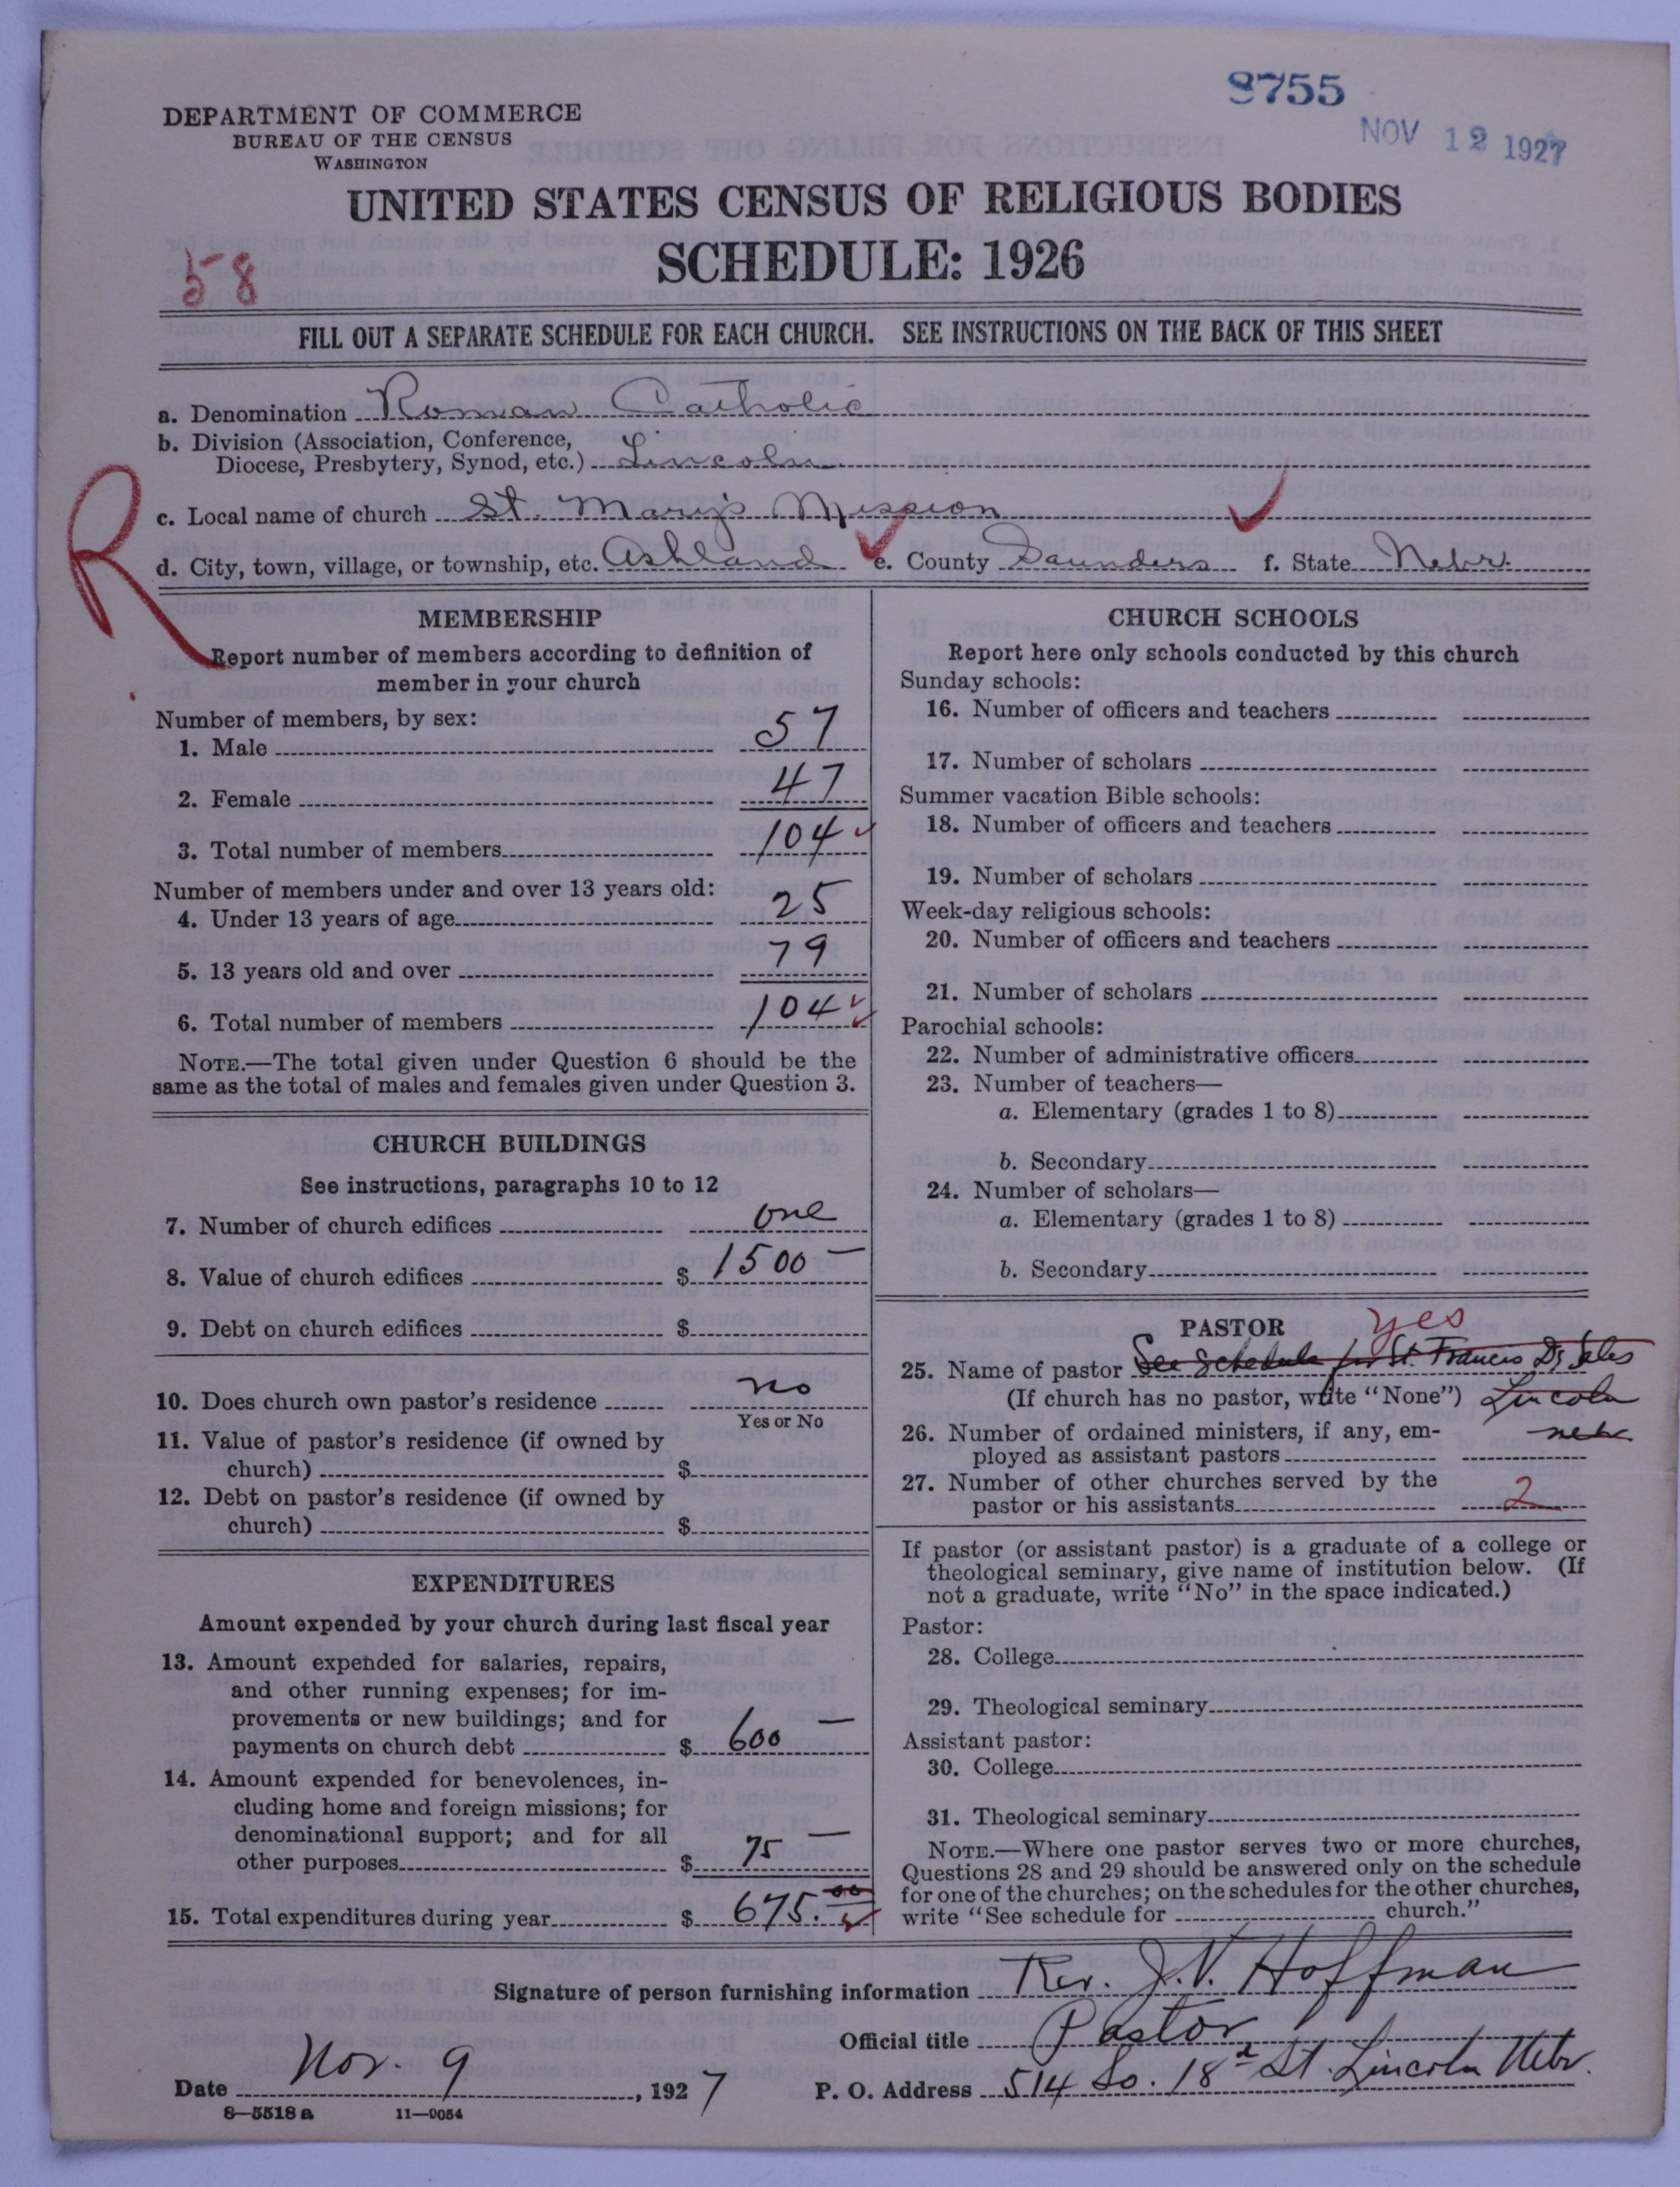 8755
NOV 12 1927
DEPARTMENT OF COMMERCE
BUREAU OF THE CENSUS
WASHINGTON
UNITED STATES CENSUS OF RELIGIOUS BODIES
SCHEDULE: 1926
58
FILL OUT A SEPARATE SCHEDULE FOR EACH CHURCH. SEE INSTRUCTIONS ON THE BACK OF THIS SHEET
R
a. Denomination Roman Catholic
b. Division (Association, Conference,
Diocese, Presbytery, Synod, etc.) Lincoln
c. Local name of church St. Mary's Mission
d. City, town, village, or township, etc. Ashland e. County Saunders f. State Nebr.
MEMBERSHIP
Report number of members according to definition of
member in your church
Number of members, by sex:
1. Male 57
2. Female 47
3. Total number of members 104
Number of members under and over 13 years old:
4. Under 13 years of age 25
5. 13 years old and over 79
6. Total number of members 104
NOTE.—The total given under Question 6 should be the
same as the total of males and females given under Question 3.
CHURCH BUILDINGS
See instructions, paragraphs 10 to 12
7. Number of church edifices one
8. Value of church edifices $ 1500 —
9. Debt on church edifices $
10. Does church own pastor's residence no
Yes or No
11. Value of pastor's residence (if owned by
church) $
12. Debt on pastor's residence (if owned by
church) $
EXPENDITURES
Amount expended by your church during last fiscal year
13. Amount expended for salaries, repairs,
and other running expenses; for im-
provements or new buildings; and for
payments on church debt $ 600 —
14. Amount expended for benevolences, in-
cluding home and foreign missions; for
denominational support; and for all
other purposes $ 75 —
15. Total expenditures during year $ 675.00
CHURCH SCHOOLS
Report here only schools conducted by this church
Sunday schools:
16. Number of officers and teachers
17. Number of scholars
Summer vacation Bible schools:
18. Number of officers and teachers
19. Number of scholars
Week-day religious schools:
20. Number of officers and teachers
21. Number of scholars
Parochial schools:
22. Number of administrative officers
23. Number of teachers—
a. Elementary (grades 1 to 8)
b. Secondary
24. Number of scholars—
a. Elementary (grades 1 to 8)
b. Secondary
PASTOR yes
25. Name of pastor See Schedule for St. Francis De Sales
(If church has no pastor, write "None") Lincoln
26. Number of ordained ministers, if any, em- nebr
ployed as assistant pastors
27. Number of other churches served by the
pastor or his assistants 2
If pastor (or assistant pastor) is a graduate of a college or
theological seminary, give name of institution below. (If
not a graduate, write "No" in the space indicated.)
Pastor:
28. College
29. Theological seminary
Assistant pastor:
30. College
31. Theological seminary
NOTE.—Where one pastor serves two or more churches,
Questions 28 and 29 should be answered only on the schedule
for one of the churches; on the schedules for the other churches,
write "See schedule for church."
Signature of person furnishing information Rev. J. V. Hoffman
Official title Pastor
Date Nov. 9, 1927 P. O. Address 514 So. 18th St. Lincoln Nebr.
8—5518a 11—9054